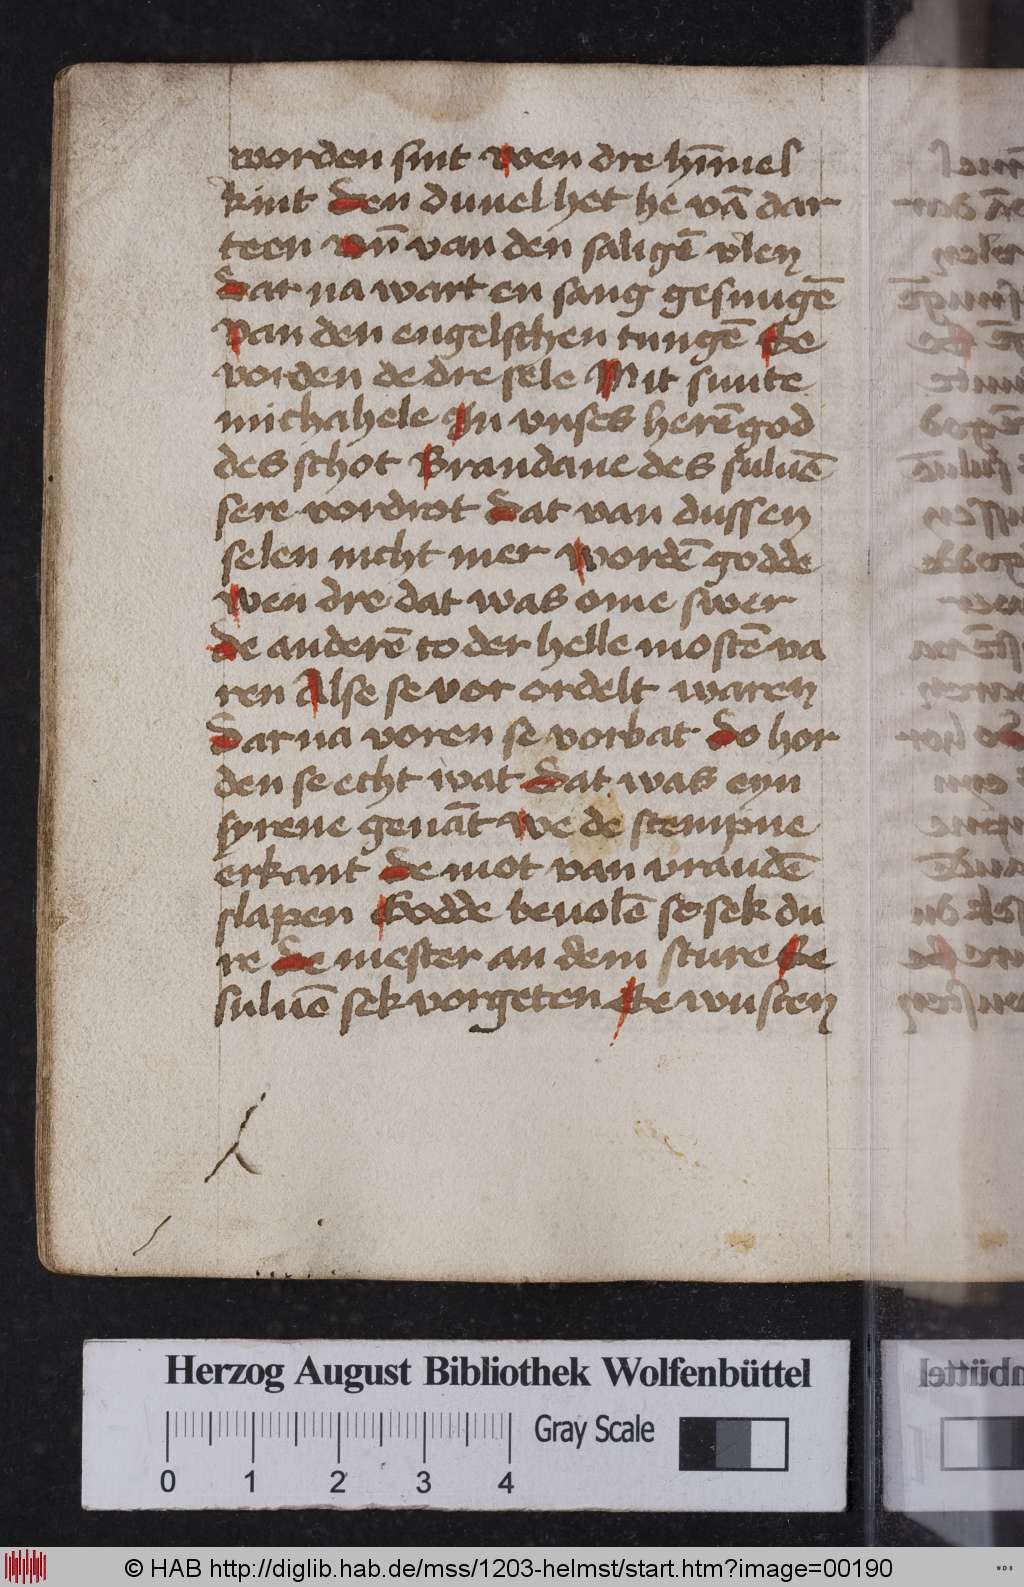 worden sint wen dre hīmel
kint den duuel het he vā dar
teen vn̄ van den saligē vlen
dar na wart en sang gesungē
van den engelschen tungē Se
vorden de dre sele Mit sunte
michahele In vnses herē god
des schot Brandane des suluē
sere vordrot dat van dussen
selen nicht mer wordē godde
wen dre dat was ome swer
de anderē to der helle mostē va
ren Alse se vor ordelt waren
dar na voren se vorbat do hor
den se echt wat dat was eyn
syrene genāt we de stempne
erkant de mot van vraudē
slapen Godde beuolē se sek du
re de mester an dem sture Se
suluē sek vorgeten Se wusten
Herzog August Bibliothek Wolfenbüttel
Gray Scale
0 1 2 3 4
© HAB http://diglib.hab.de/mss/1203-helmst/start.htm?image=00190